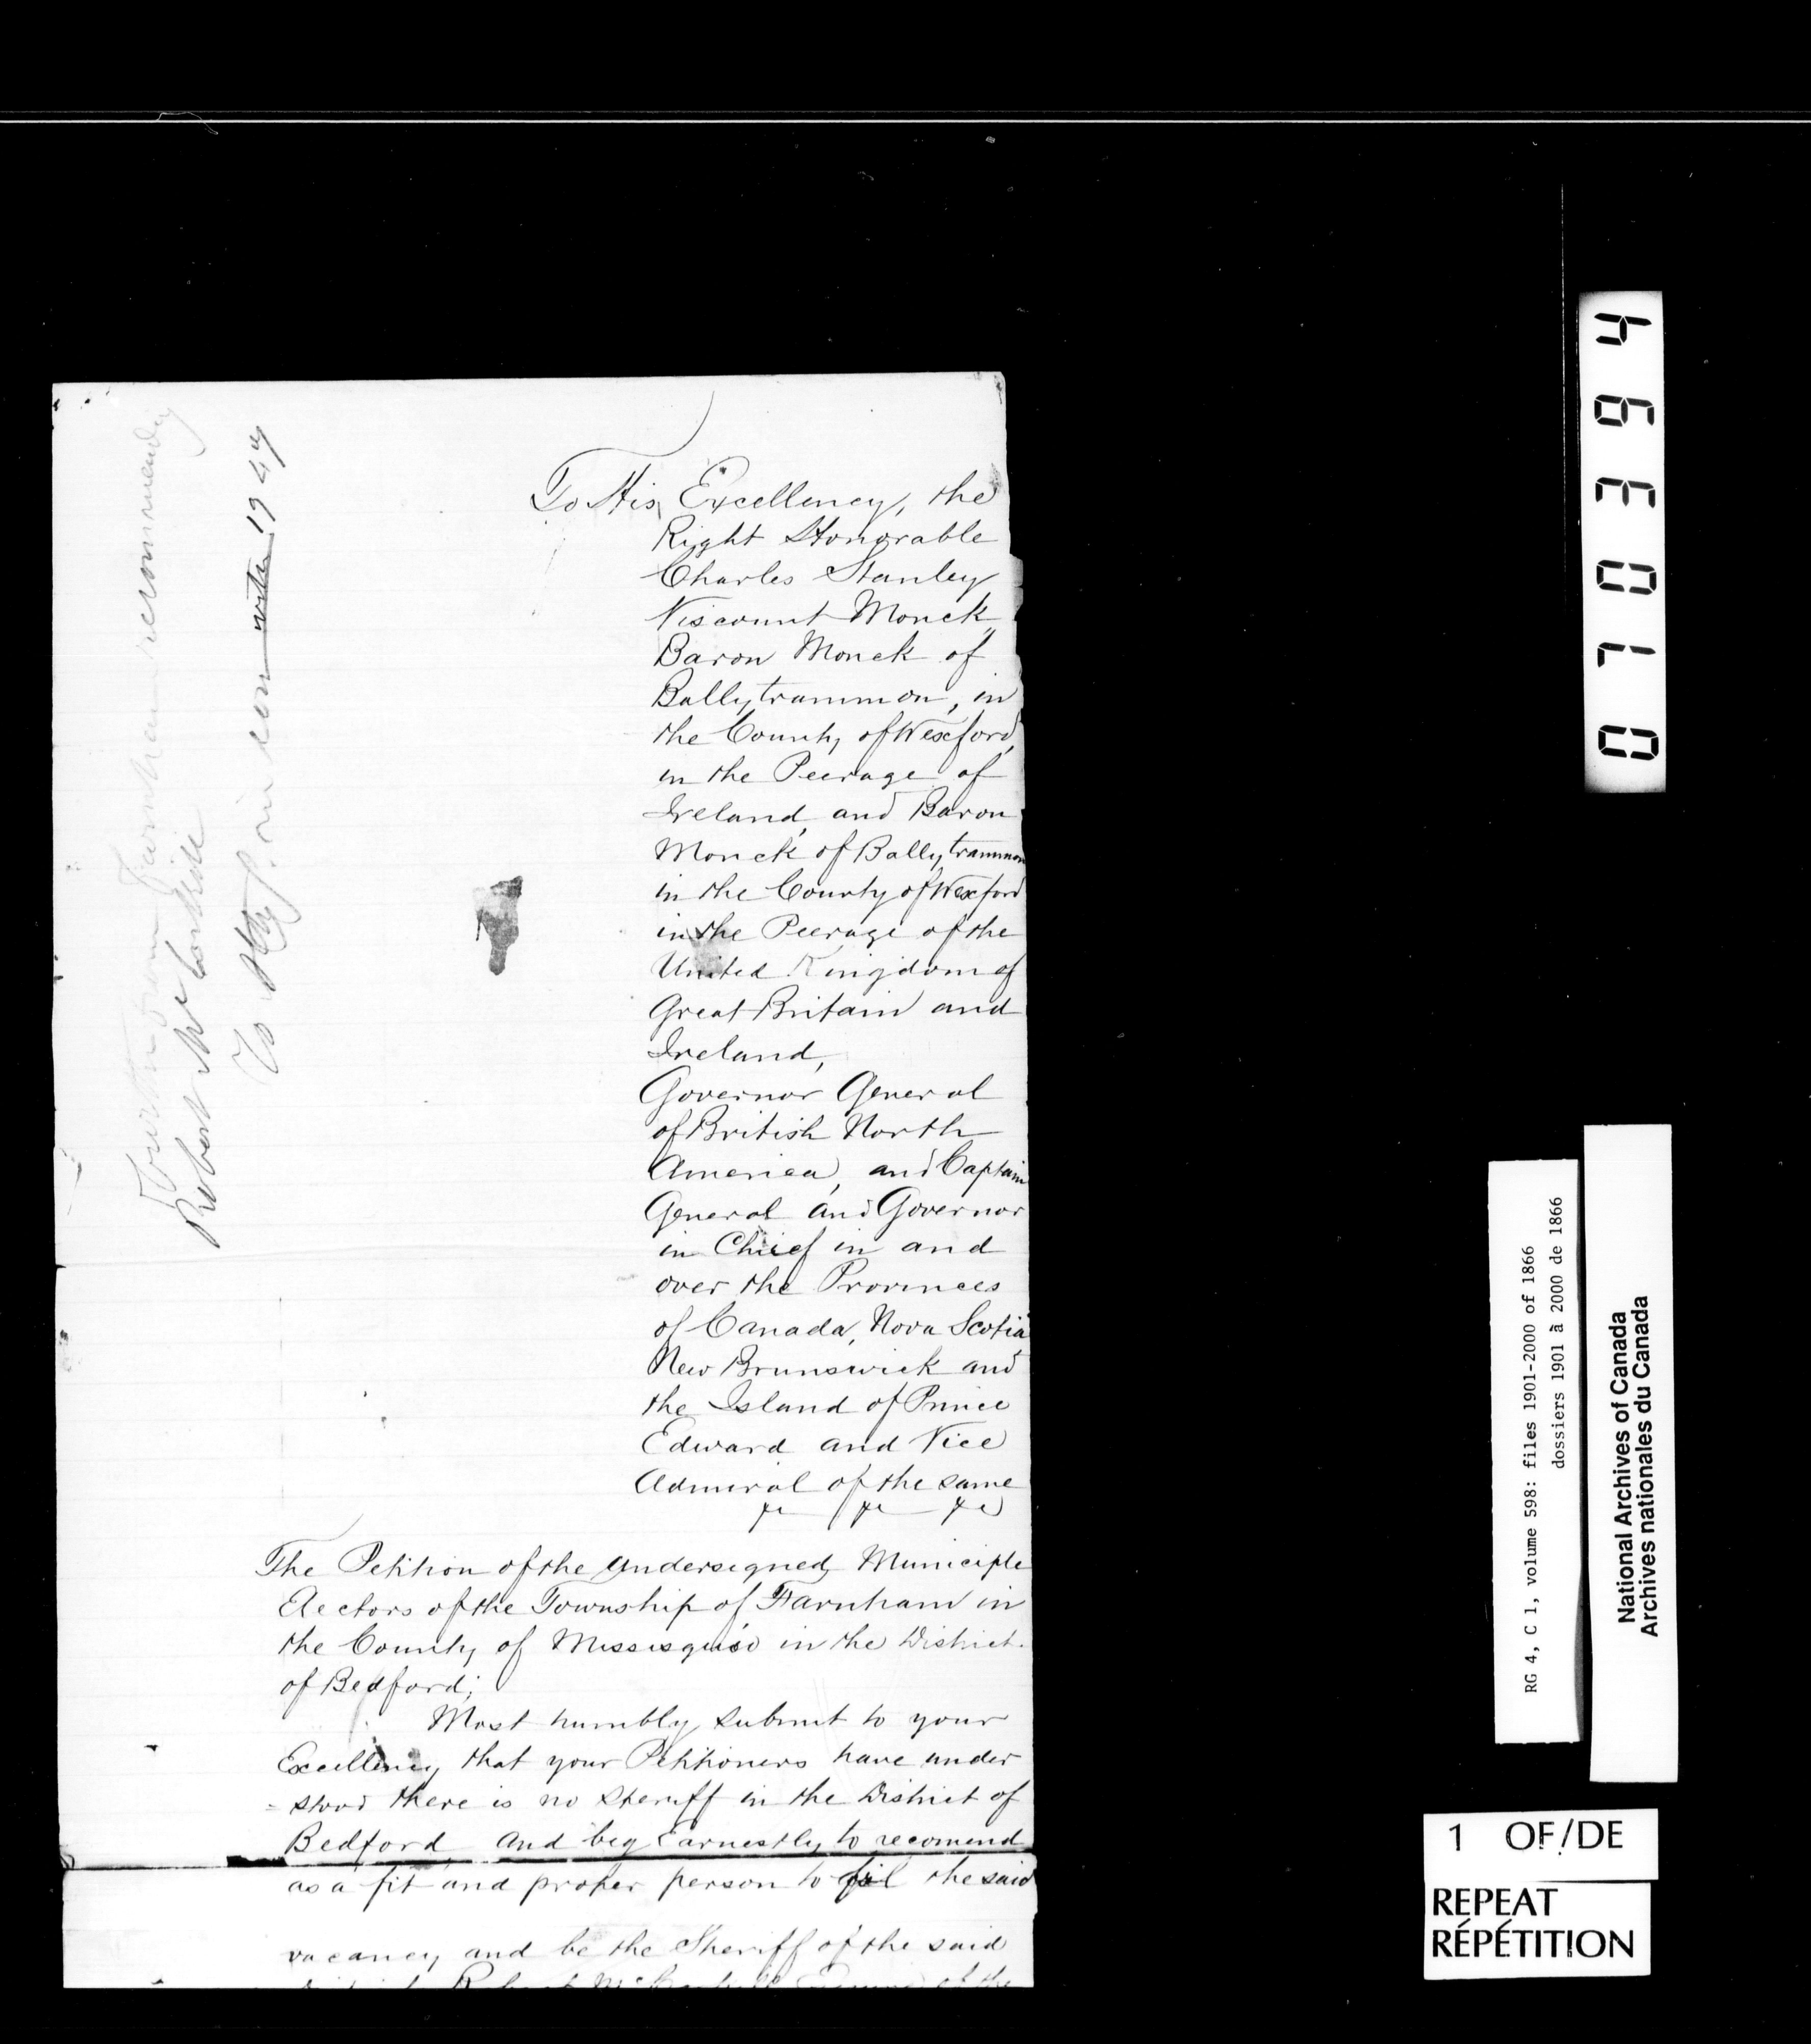 To His Excellency, the
Right Honorable
Charles Stanley
Viscount Monck,
Baron Monck of
Ballytrammon, in
the County of Wexford,
in the Peerage of
Ireland, and Baron
Monck of Ballytrammon
in the County of Wexford
in the Peerage of the
United Kingdom of
Great Britain and
Ireland,
Governor General
of British North
America, and Captain
General and Governor
in Chief in and
over the Provinces
of Canada, Nova Scotia
New Brunswick and
the Island of Prince
Edward and Vice
Admiral of the same
&c &c &c
The Petition of the Undersigned, Municiple
Electors of the Township of Farnham in
the County of Missisquoi in the District
of Bedford;
Most humbly submit to your
Excellency that your Petitioners have under
= stood there is no Sheriff in the District of
Bedford and beg earnestly to recomend
as a fit and proper person to fil the said
vacancy and be the Sheriff of the said
Farnham recommending
Robert McCorkill
To Atty. in con with 1947
0710364
RG 4, C 1, volume 598: files 1901-2000 of 1866
dossiers 1901 à 2000 de 1866
National Archives of Canada
Archives nationales du Canada
1 OF/DE
REPEAT
RÉPÉTITION